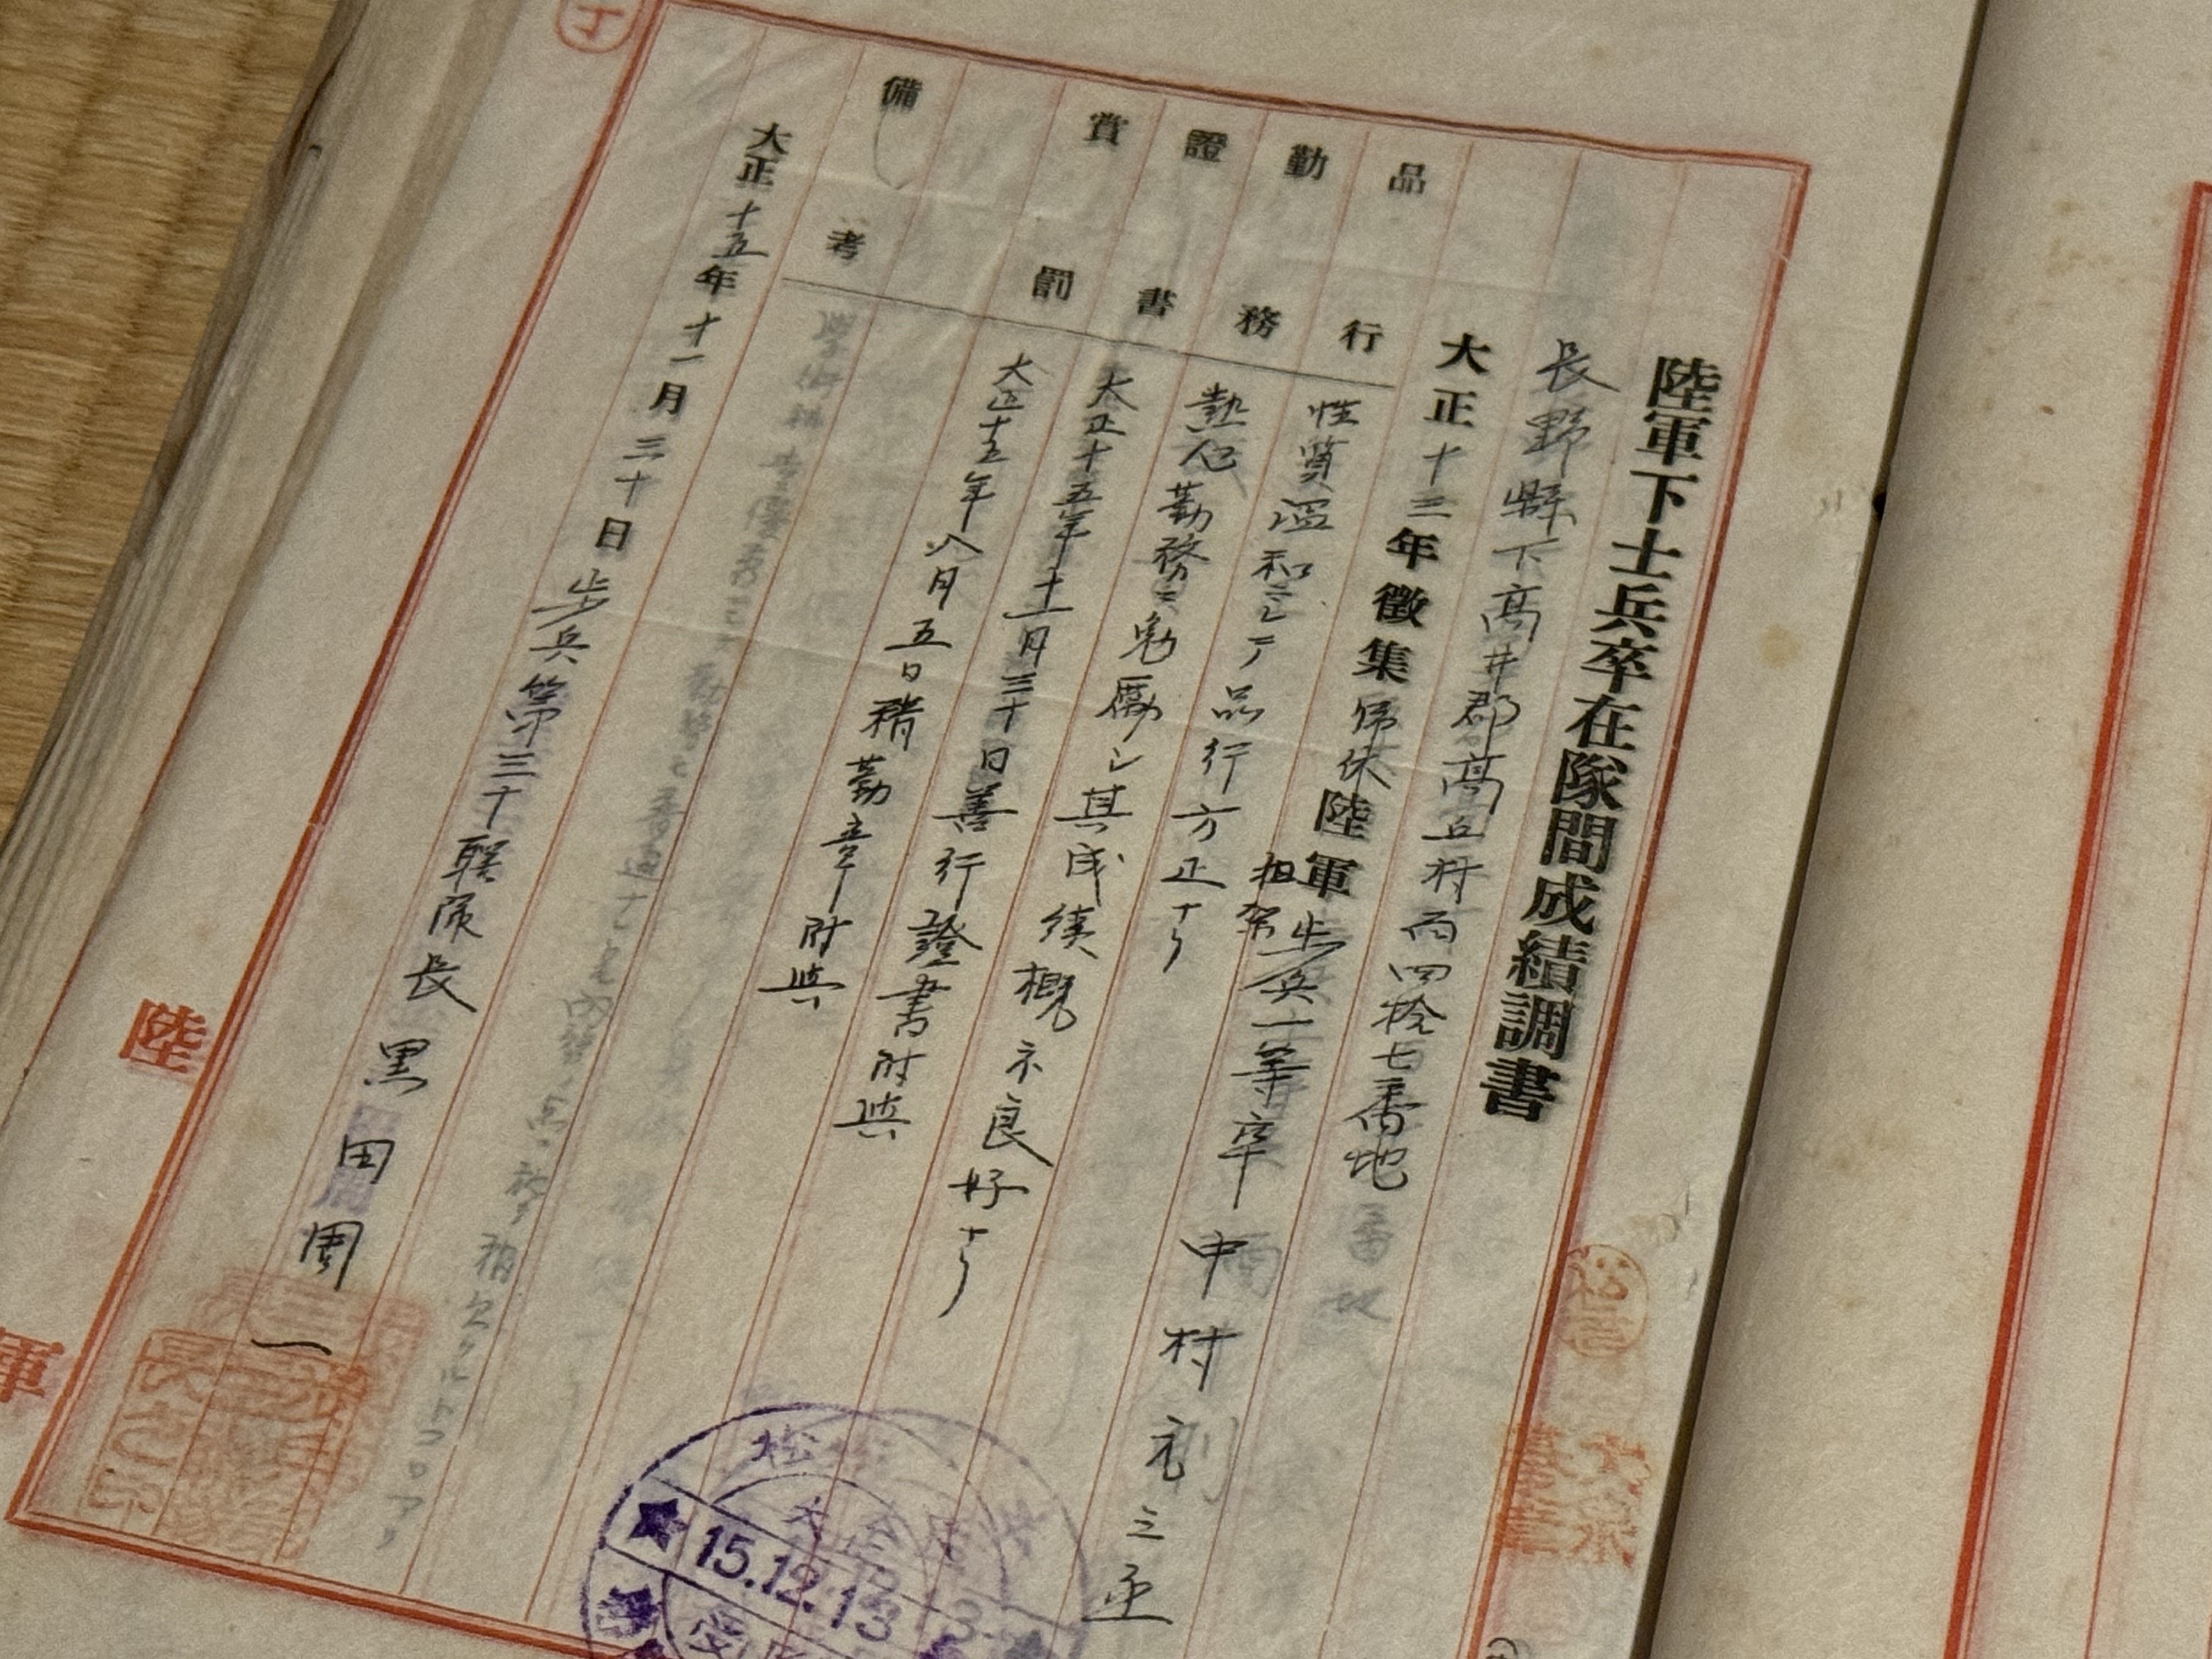 陸軍下士兵卒在隊間成績調書
長野縣下高井郡高丘村
四拾七番地
大正十三年徴集歸休陸軍歩兵一等卒 中村
担架
品行
性質温和ニシテ品行方正ナリ
勤務
熱心勤務ニ勉勵シ其成績概ネ良好ナリ
證書
大正十五年十一月三十日善行證書附與
賞罰
大正十五年八月五日精勤章附與
備考
大正十五年十一月三十日
歩兵第三十聯隊長 黒田周一
陸軍
15.12.13